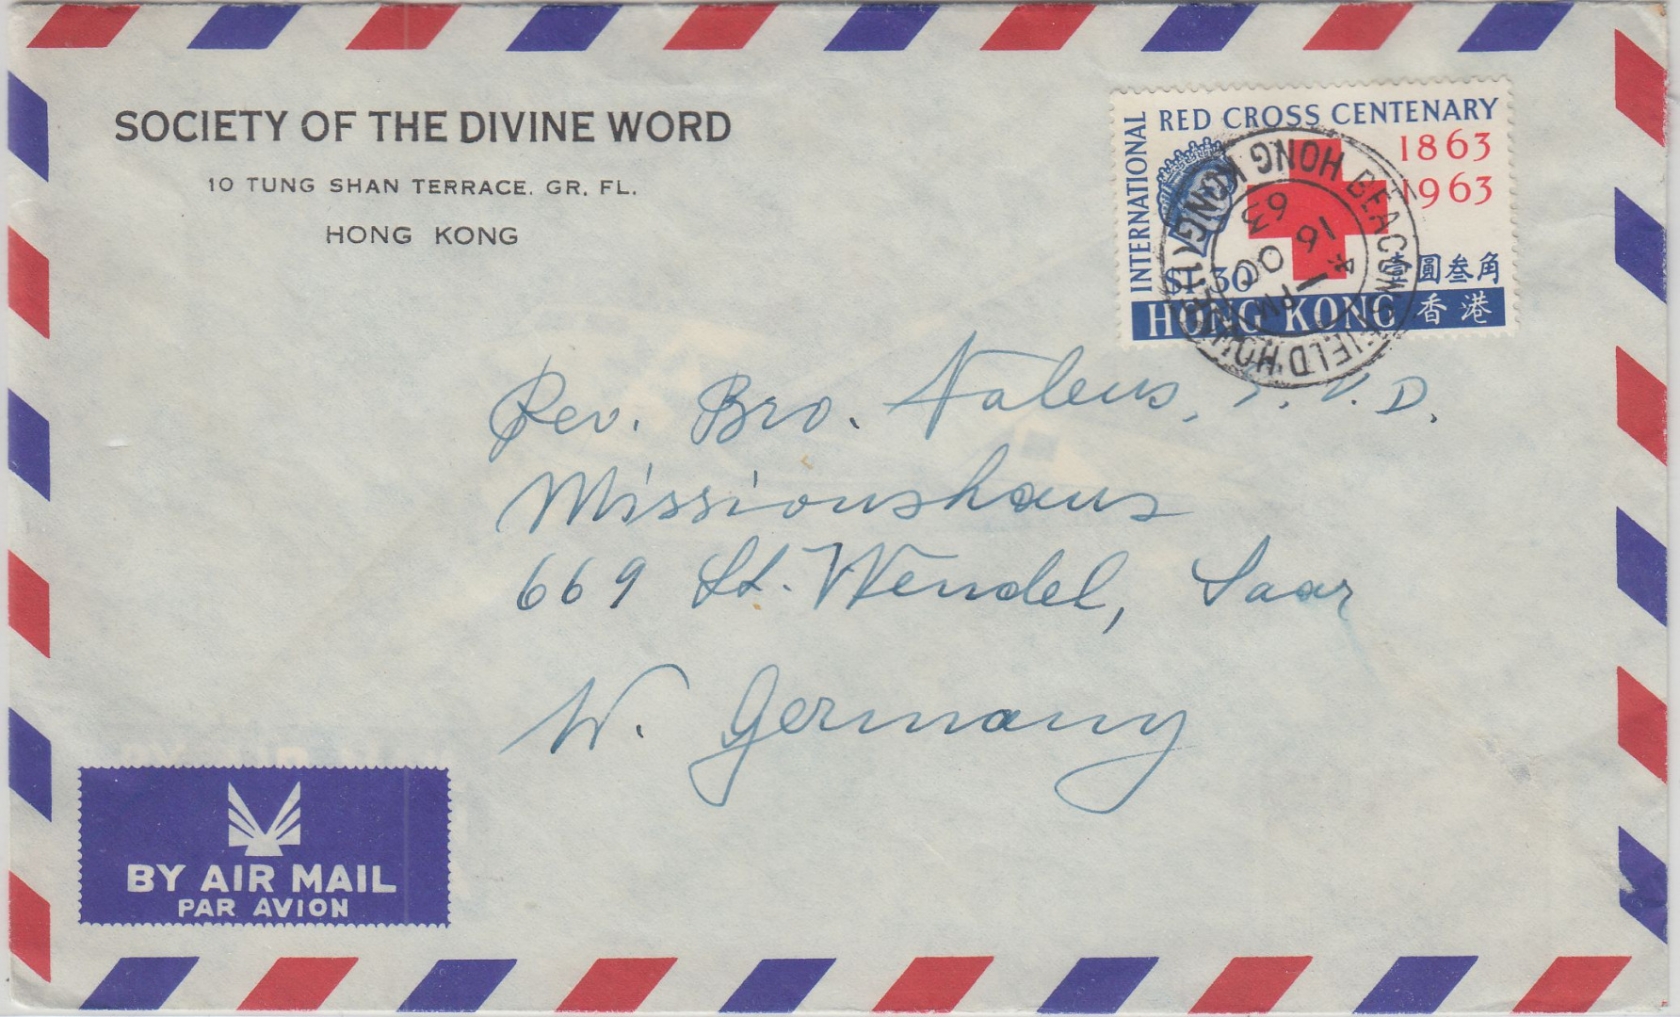 SOCIETY OF THE DIVINE WORD
10 TUNG SHAN TERRACE. GR. FL.
HONG KONG
INTERNATIONAL
RED CROSS CENTENARY
1863
1963
$1.30
壹圓叁角
HONG KONG 香港
BEACONSFIELD HOUSE HONG KONG
1 PM
16 OC
63
Rev. Bro. Natens, S.V.D.
Missionshaus
669 St. Wendel, Saar
W. Germany
BY AIR MAIL
PAR AVION